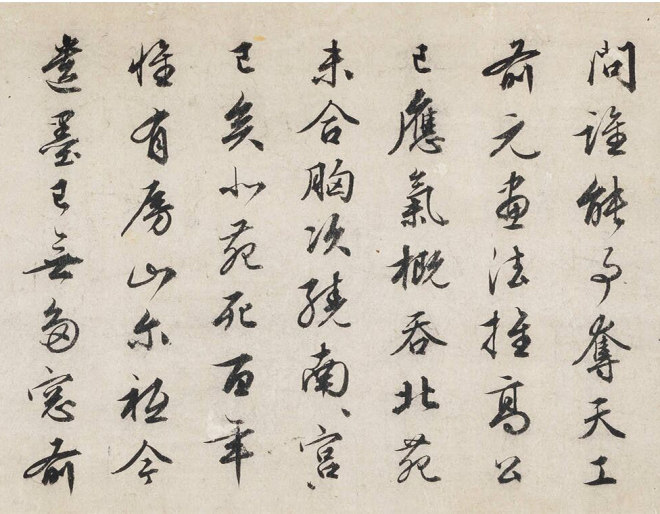 問誰能事奪天工
前元畫法推高公
已應氣概吞北苑
未合胸次饒南宮
已矣北苑死百年
惟有房山尔祗今
遺墨已無多窓前